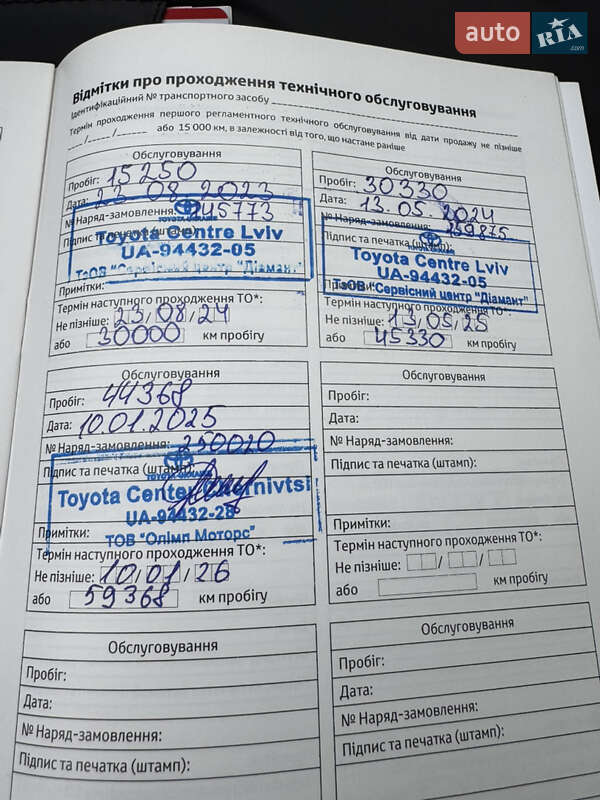 auto RIA.com
Відмітки про проходження технічного обслуговування
Ідентифікаційний № транспортного засобу
Термін проходження першого регламентного технічного обслуговування від дати продажу не пізніше
__/__/____ або 15 000 км, в залежності від того, що настане раніше
Обслуговування
Пробіг: 15250
Дата: 23 08 2023
№ Наряд-замовлення: 245773
TOYOTA-UKRAINE
Підпис та печатка (штамп):
Toyota Centre Lviv
UA-94432-05
ТзОВ "Сервісний центр "Діамант"
Примітки:
Термін наступного проходження ТО*:
Не пізніше: 23/08/24
або 30000 км пробігу
Обслуговування
Пробіг: 30330
Дата: 13.05.2024
№ Наряд-замовлення: 259875
Підпис та печатка (штамп):
Toyota Centre Lviv
UA-94432-05
ТзОВ "Сервісний центр "Діамант"
Примітки:
Термін наступного проходження ТО*:
Не пізніше: 13/05/25
або 45330 км пробігу
Обслуговування
Пробіг: 44368
Дата: 10.01.2025
№ Наряд-замовлення: 290020
Підпис та печатка (штамп):
TOYOTA-UKRAINE
Toyota Centre Chernivtsi
UA-94432-28
ТОВ "Олімп Моторс"
Примітки:
Термін наступного проходження ТО*:
Не пізніше: 10/01/26
або 59368 км пробігу
Обслуговування
Пробіг:
Дата:
№ Наряд-замовлення:
Підпис та печатка (штамп):
Примітки:
Термін наступного проходження ТО*:
Не пізніше: / /
або км пробігу
Обслуговування
Пробіг:
Дата:
№ Наряд-замовлення:
Підпис та печатка (штамп):
Обслуговування
Пробіг:
Дата:
№ Наряд-замовлення:
Підпис та печатка (штамп):